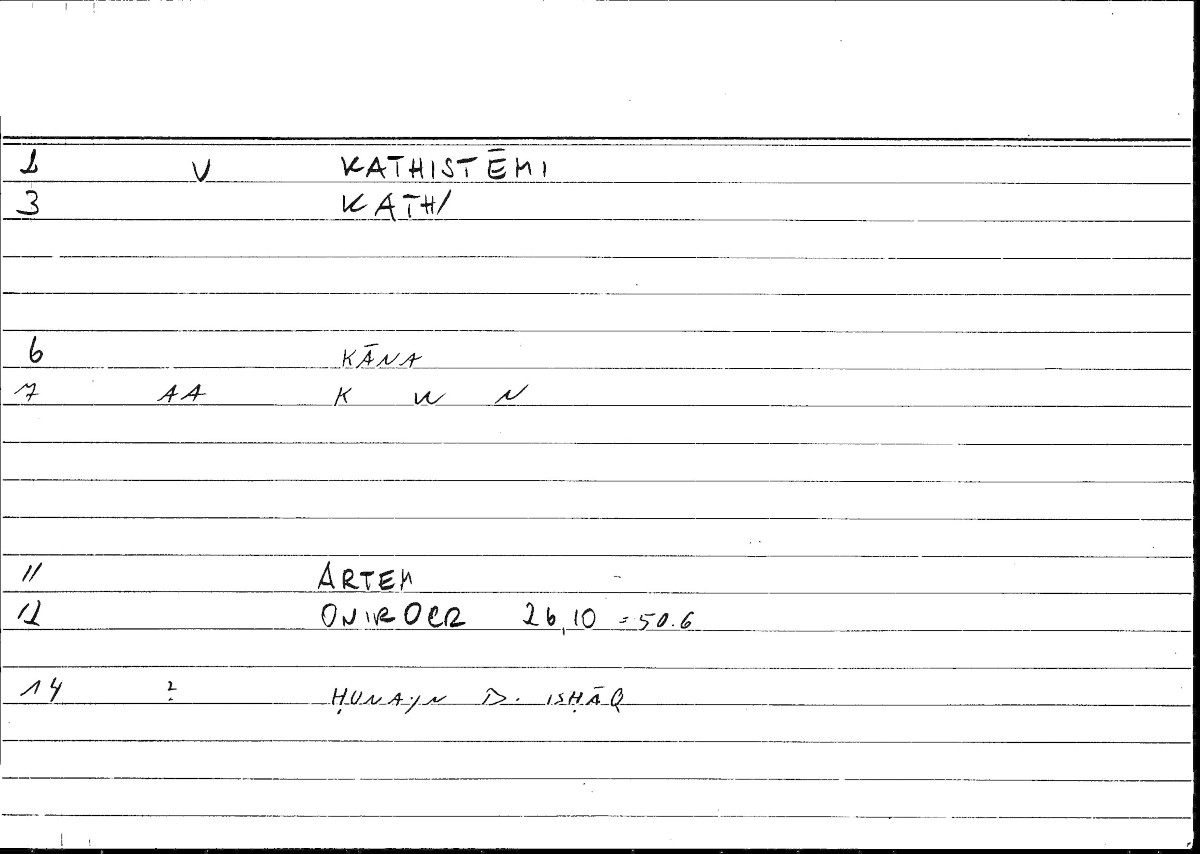 1 V KATHISTĒMI
3 KATH/
6 KĀNA
7 AA K W N
11 ARTEM
12 ONIROCR 26,10 = 50.6
14 2 ḤUNAYN B. ISḤĀQ